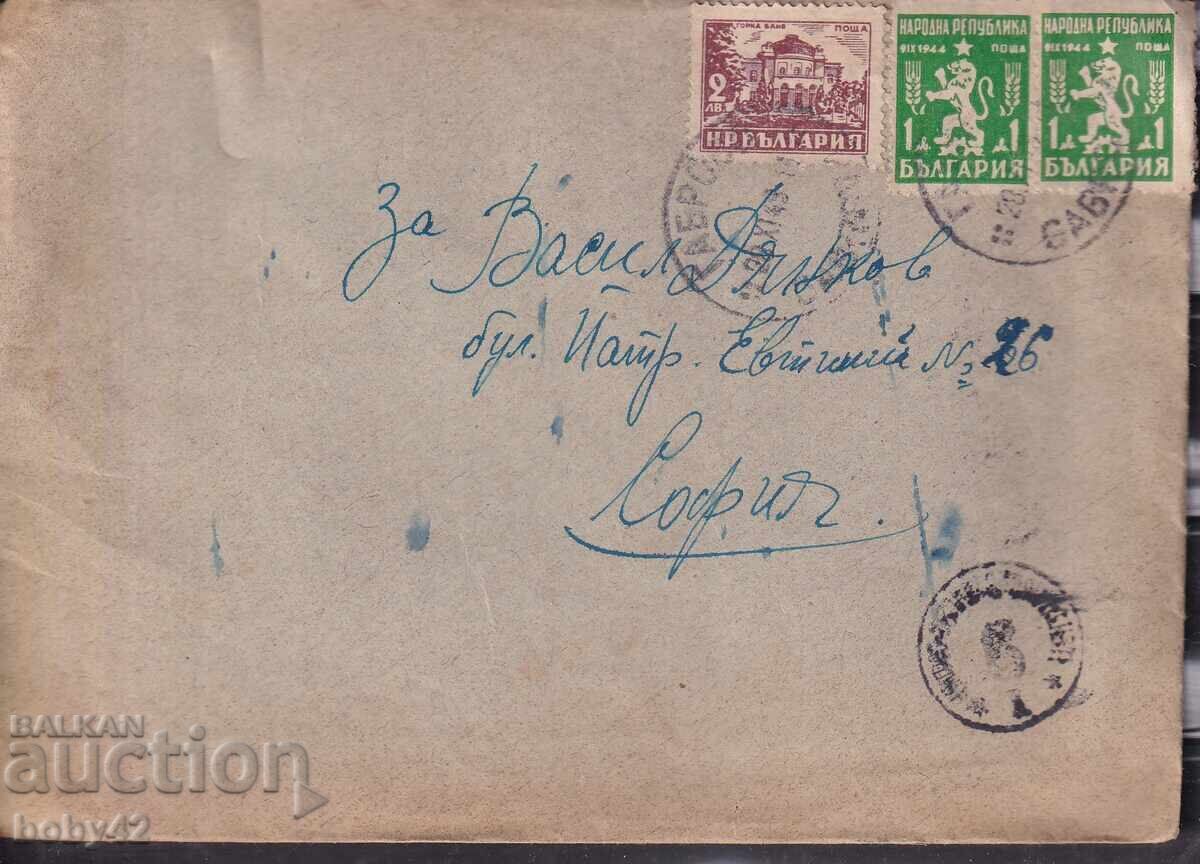 ГОРНА БАНЯ ПОЩА
2 ЛВ.
Н.Р.БЪЛГАРИЯ
НАРОДНА РЕПУБЛИКА
9IX1944 ПОЩА
1 Л. 1
БЪЛГАРИЯ
НАРОДНА РЕПУБЛИКА
9IX1944 ПОЩА
1 Л. 1
БЪЛГАРИЯ
ГАБРОВО
За Васил
бул. Патр. Евтимий № 26
София.
BALKAN
auction
boby42